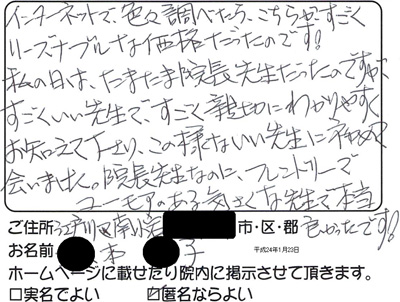 インターネットで、色々調べたら、こちらがすごく
リーズナブルな価格だったのです!
私の日は、たまたま院長先生だったのですが
すごくいい先生で、すごく親切にわかりやすく
お知えて下さり、この様ないい先生に初めて
会いました。院長先生なのに、フレンドリーで
ユーモアのある気さくな先生で本当
ご住所 江戸川区南小岩 市・区・郡 良かったです!
お名前 本 子 平成24年1月23日
ホームページに載せたり院内に掲示させて頂きます。
□実名でよい ☑匿名ならよい